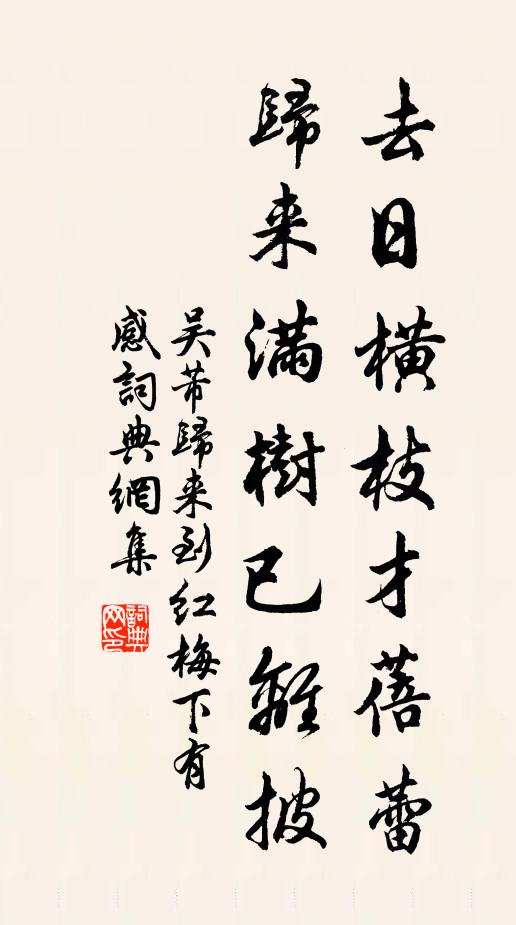 去日橫枝才蓓蕾
歸来滿樹已離披
吴芾歸来到红梅下有
感詞典網集
詞典网印